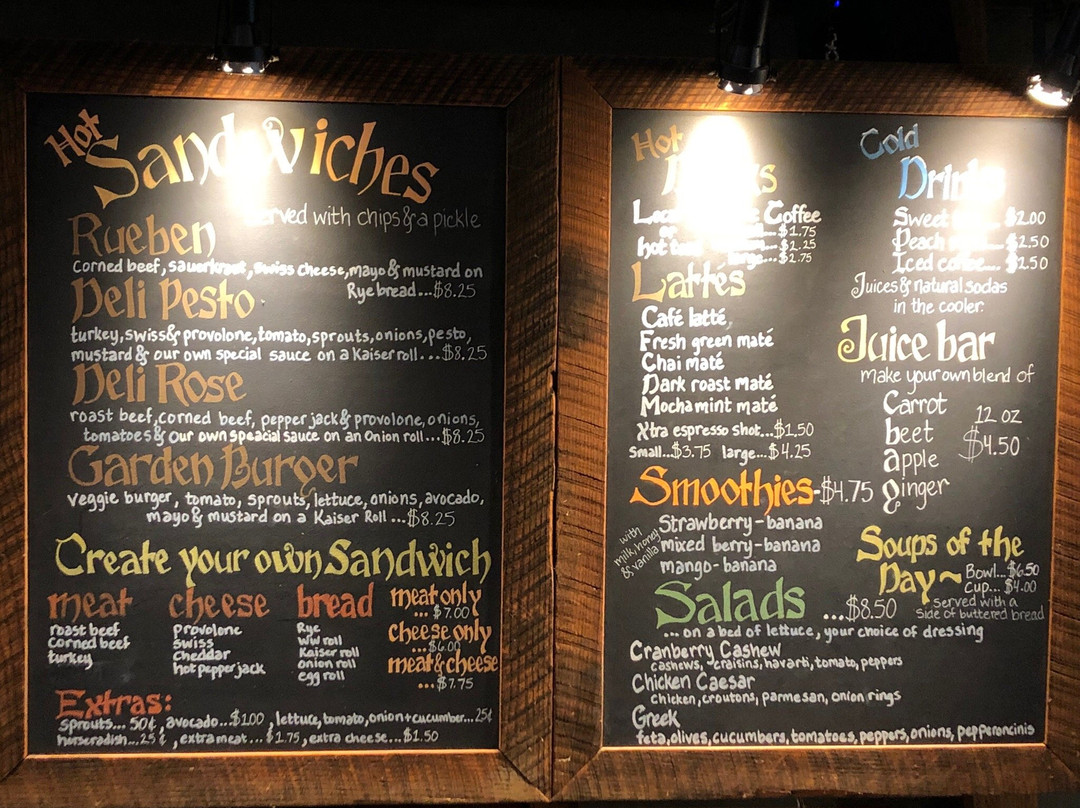 Hot
Sandwiches
served with chips & a pickle
Rueben
corned beef, sauerkraut, swiss cheese, mayo & mustard on
Rye bread...$8.25
Deli Pesto
turkey, swiss & provolone, tomato, sprouts, onions, pesto,
mustard & our own special sauce on a Kaiser roll...$8.25
Deli Rose
roast beef, corned beef, pepper jack & provolone, onions,
tomatoes & our own speacial sauce on an Onion roll...$8.25
Garden Burger
veggie burger, tomato, sprouts, lettuce, onions, avocado,
mayo & mustard on a Kaiser Roll...$8.25
Create your own Sandwich
meat
roast beef
corned beef
turkey
cheese
Provolone
Swiss
Cheddar
hot pepper jack
bread
Rye
WW roll
Kaiser roll
onion roll
egg roll
meat only
...$7.00
cheese only
...$6.00
meat & cheese
...$7.75
Extras:
Sprouts...50¢, avocado...$1.00, lettuce, tomato, onion + cucumber...25¢
horseradish...25¢, extra meat...$1.75, extra cheese...$1.50
Hot
Coffee
or $1.75
hot $2.25
large...$2.75
Lattés
Café latté,
Fresh green maté
Chai maté
Dark roast maté
Mocha mint maté
Xtra espresso shot...$1.50
Small...$3.75 large...$4.25
Smoothies-$4.75
with
milk, honey
& vanilla
Strawberry-banana
mixed berry-banana
mango-banana
Cold
Drinks
Sweet $2.00
Peach $2.50
Iced coffee...$2.50
Juices & natural sodas
in the cooler.
Juice bar
make your own blend of
Carrot
beet
apple
ginger
12 oz
$4.50
Soups of the
Day~
Bowl...$6.50
Cup...$4.00
served with a
side of buttered bread
Salads ...$8.50
...on a bed of lettuce, your choice of dressing
Cranberry Cashew
cashews, craisins, havarti, tomato, peppers
Chicken Caesar
chicken, croutons, parmesan, onion rings
Greek
feta, olives, cucumbers, tomatoes, peppers, onions, pepperoncinis